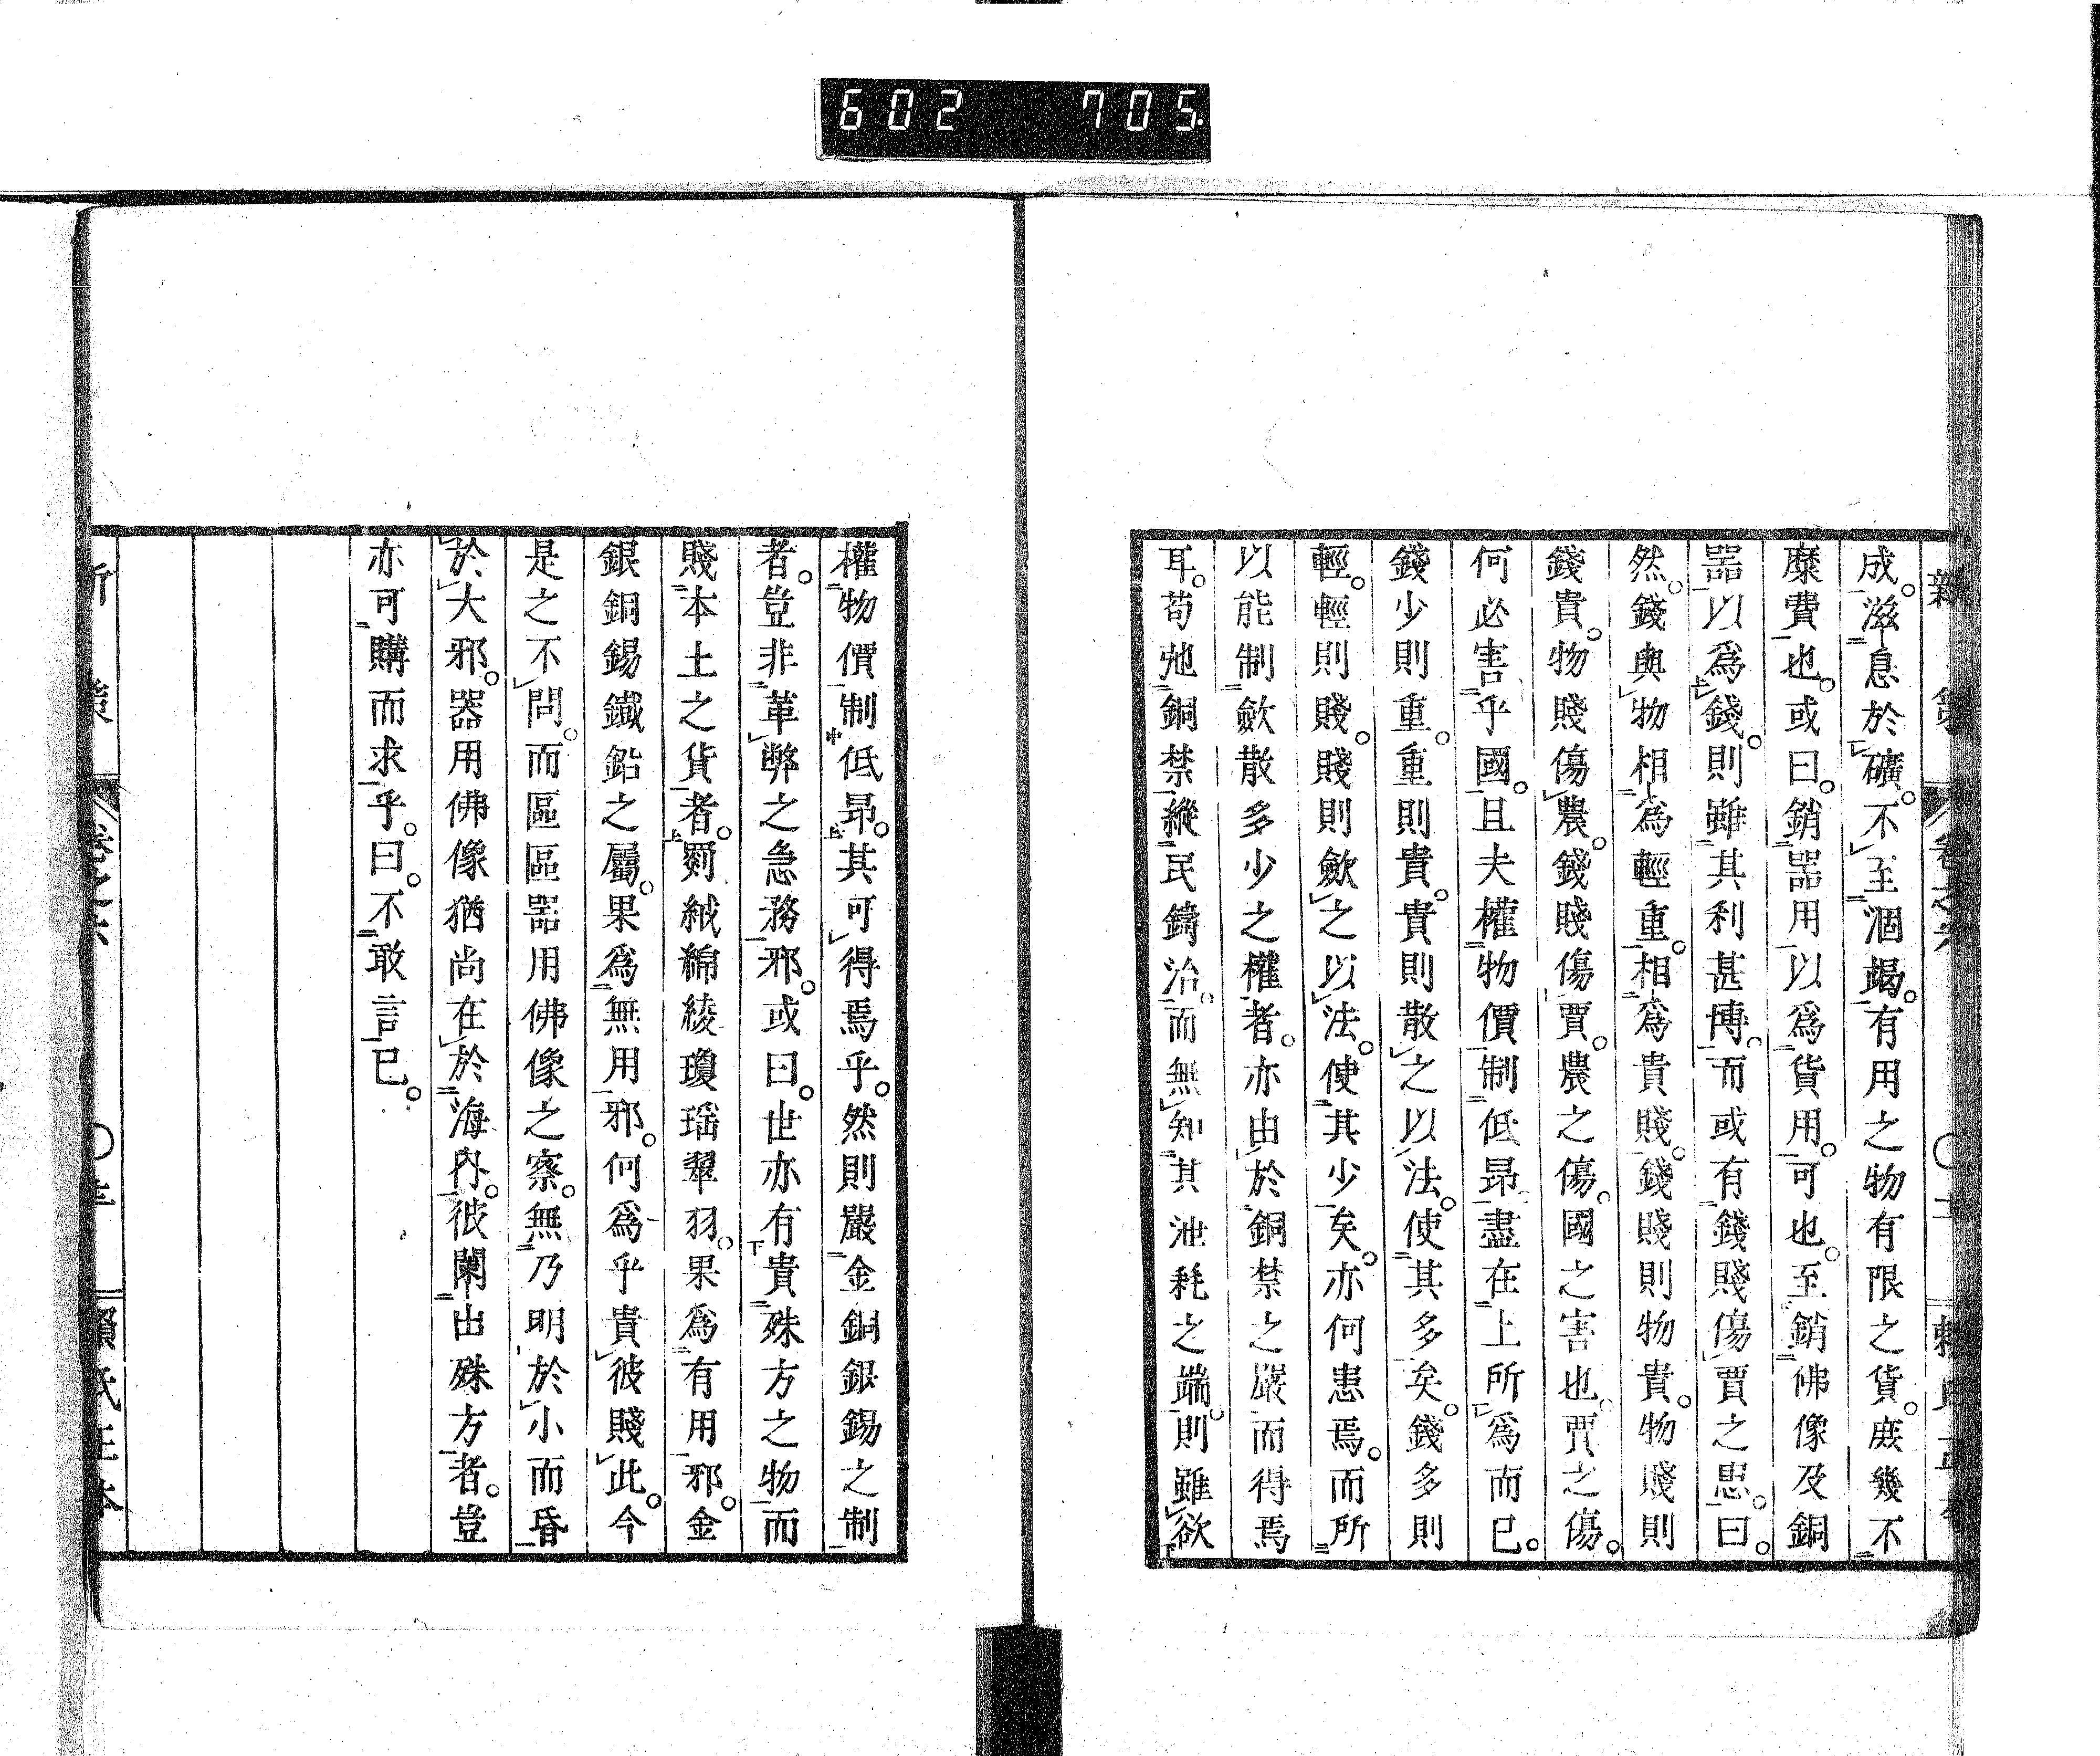 602 705
新策 卷之六
成。滋息於礦。不至涸竭。有用之物有限之貨。庶幾不
糜費也。或曰。銷噐用以爲貨用。可也。至銷佛像及銅
噐以爲錢。則雖其利甚博。而或有錢賤傷賈之患。曰。
然。錢與物相爲輕重。相爲貴賤。錢賤則物貴。物賤則
錢貴。物賤傷農。錢賤傷賈。農之傷。國之害也。賈之傷。
何必害乎國。且夫權物價制低昂。盡在上所爲而已。
錢少則重。重則貴。貴則散之以法。使其多矣。錢多則
輕。輕則賤。賤則斂之以法。使其少矣。亦何患焉。而所
以能制斂散多少之權者。亦由於銅禁之嚴而得焉
耳。苟弛銅禁。縱民鑄冶。而無知其泄耗之端。則雖欲
權物價制低昂。其可得焉乎。然則嚴金銅銀錫之制
者。豈非革弊之急務邪。或曰。世亦有貴殊方之物而
賤本土之貨者。罽絨綿綾瓊瑶翠羽。果爲有用邪。金
銀銅錫鐵鉛之屬。果爲無用邪。何爲乎貴彼賤此。今
是之不問。而區區噐用佛像之察。無乃明於小而昏
於大邪。器用佛像猶尚在於海內。彼闌出殊方者。豈
亦可購而求乎。曰。不敢言已。
新策 卷之六 賴氏正本